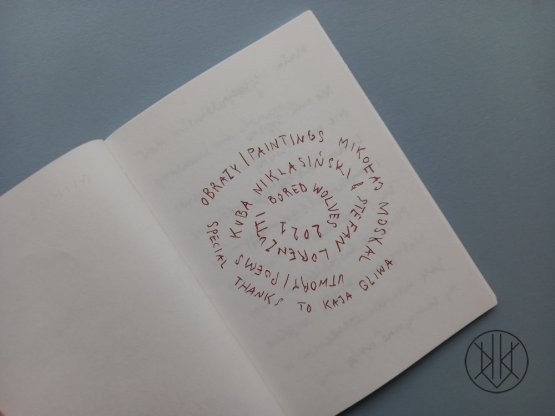 OBRAZY | PAINTINGS MIKOŁAJ MOSKAL
UTWORY | POEMS
KUBA NIKLASIŃSKI & STEFAN LORENZUTTI
BORED WOLVES 2021
SPECIAL THANKS TO KAJA GLIWA